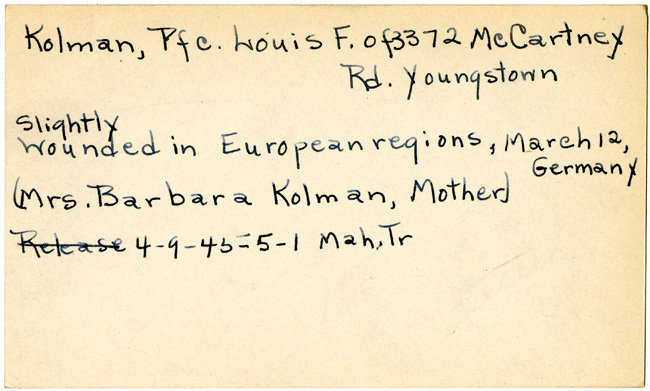 Kolman, Pfc. Louis F. of 3372 McCartney
Rd. Youngstown
Slightly
wounded in European regions, March 12,
Germany
(Mrs. Barbara Kolman, Mother)
Release 4-9-45-5-1 Mah, Tr